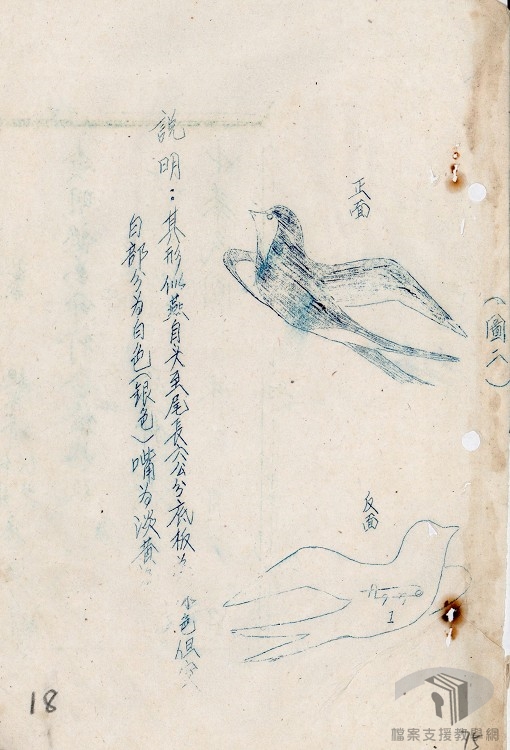 （圖二）
正面
反面
1
說明：其形似燕自头至尾長六公分底板为
小色但
白部分为白色（銀色）嘴为淡黄
18
15
檔案支援教學網